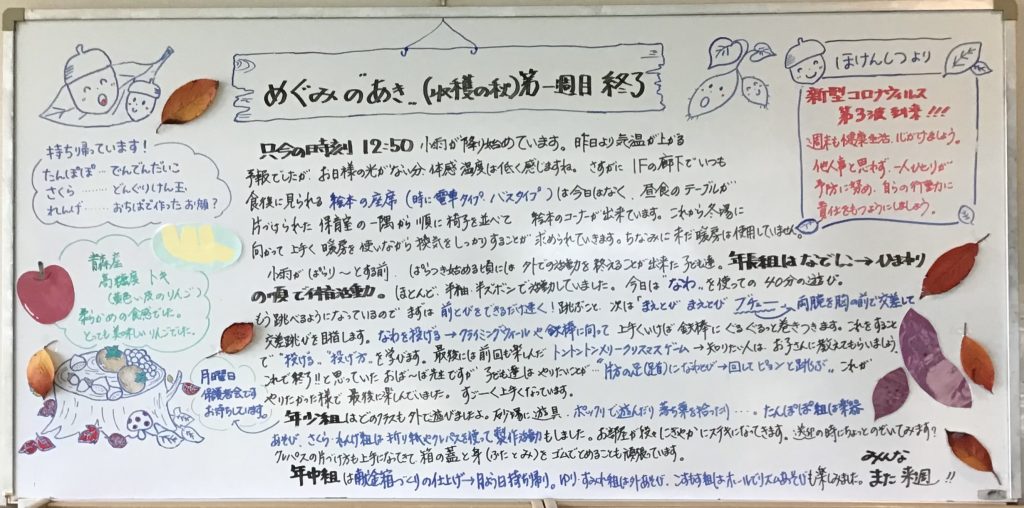 めぐみのあき…(収穫の秋)第一週目 終了
持ち帰っています!
たんぽぽ…でんでんだいこ
さくら……どんぐりけん玉
れんげ……おちばで作ったお顔?
青森産
高糖度 トキ
(黄色い皮のりんご)
柔らかめの食感でした。
とっても美味しいりんごでした。
月曜日
保護者会です
お待ちしています。
ほけんしつより
新型コロナウィルス
第3波到来!!!
週末も健康生活、心がけましょう。
他人事と思わず、一人ひとりが
予防に努め、自らの行動に
責任をもつようにしましょう。
只今の時刻 12:50 小雨が降り始めています。昨日より気温が上がる
予報でしたが、お日様の光がない分、体感温度は低く感じますね。さすがに1Fの廊下でいつも
食後に見られる 絵本の座席(時に電車タイプ、バスタイプ)は今日はなく、昼食のテーブルが
片づけられた保育室の一隅から順に椅子を並べて 絵本のコーナーが出来ています。これから冬場に
向かって上手く暖房を使いながら換気をしっかりすることが求められていきます。ちなみに未だ暖房は使用していません。
小雨がぱらり〜とする前、ぱらつき始める頃には外での活動を終えることが出来た子ども達。年長組はなでしこ→ひまわり
の順で体育活動。ほとんど、半袖・半ズボンで活動していました。今日は"なわ"を使っての40分の遊び。
もう跳べるようになっているので まずは 前とびをできるだけ速く!跳ぶこと 次は「まえとび まえとび ブラーン」両腕を胸の前で交差して
交差跳びを目指します。なわを投げる→クライミングウォールや鉄棒に向って 上手くいけば鉄棒にくるくるっと巻きつきます。これをすること
で"投げる""投げ方"を学びます。最後には前回も楽しんだ トントントンメリークリスマスゲーム→知りたい人は、お子さんに教えてもらいましょう。
これで終了!!と思っていたおば〜ば先生ですが、子ども達はやりたいことが…片方の足(足首)になわとび→回してピョンと跳ぶ〟これが
やりたかった様で 最後に楽しんでいました。す〜ごく上手くなっています。
年少組はどのクラスも外で遊びましたよ。砂場に遊具、ポックリで遊んだり 落ち葉を拾ったり……。たんぽぽ組は楽器
あそび、さくら・れんげ組は折り紙やクレパスを使って製作活動もしました。お部屋が段々にぎやかにステキになってきます。送迎の時にちょっとのぞいてみます?
クレパスの片づけ方も上手になってきて 箱の蓋と身(ふたとみ)をゴムでとめることも頑張っています。
年中組は献金箱づくりの仕上げ→月よう日持ち帰り。ゆり・すみれ組は外あそび、こすもす組はホールでリズムあそびも楽しみました。
みんな
また来週!!